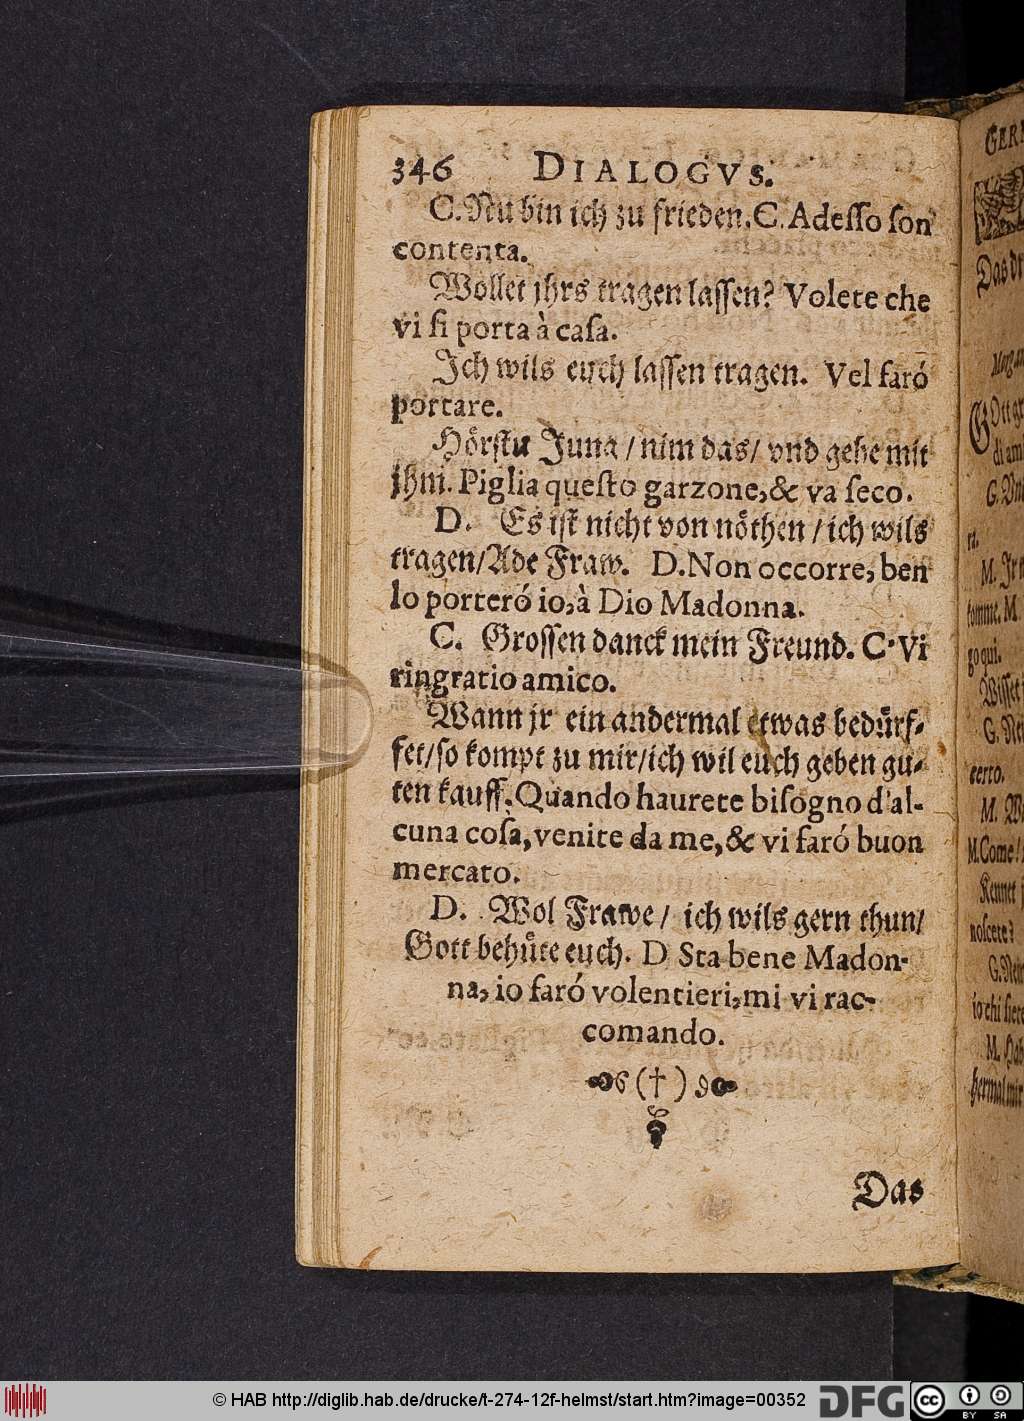 346 DIALOGVS.
C. Nu bin ich zu frieden. C. Adeſſo ſon
contenta.
Wollet jhrs tragen laſſen? Volete che
vi ſi porta à caſa.
Ich wils euch laſſen tragen. Vel faró
portare.
Hörſtu Jung / nim das / vnd gehe mit
jhm. Piglia queſto garzone, & va ſeco.
D. Es iſt nicht von nöthen / ich wils
tragen / Ade Fraw. D. Non occorre, ben
lo porteró io, à Dio Madonna.
C. Groſſen danck mein Freund. C. Vi
ringratio amico.
Wann jr ein andermal etwas bedürf-
fet / ſo kompt zu mir / ich wil euch geben gu-
ten kauff. Quando haurete biſogno d'al-
cuna coſa, venite da me, & vi faró buon
mercato.
D. Wol Frawe / ich wils gern thun /
Gott behüte euch. D Sta bene Madon-
na, io faró volentieri, mi vi rac-
comando.
(†)
Das
GER
Das
G. Ne
M. Jr
komme. M.
go qui.
Wiſſet
certo.
M. W
M. Come
Kennet
noſcete?
© HAB http://diglib.hab.de/drucke/t-274-12f-helmst/start.htm?image=00352
DFG
cc
BY SA